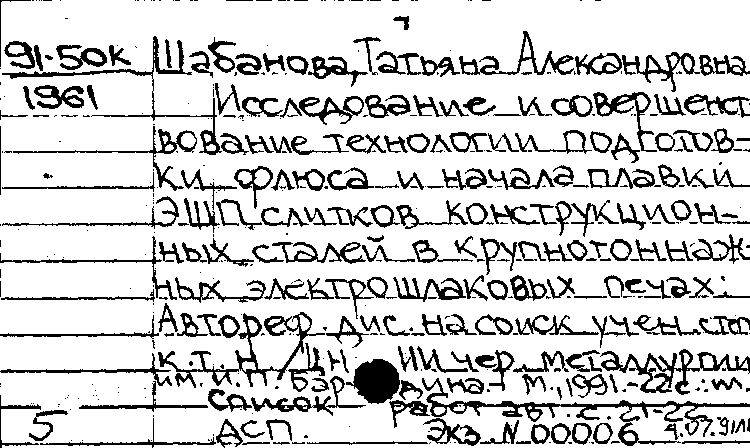 91-50к Шабанова, Татьяна Александровна
1961 Исследование и совершенст
вование технологии подготов-
ки флюса и начала плавки
ЭШП слитков конструкцион-
ных сталей в крупнотоннаж-
ных электрошлаковых печах:
Автореф. дис. на соиск учен. степ
к.т.н /ЦНИИ чер. металлургии
им. И.П. Бардина.- М., 1991.-22 с.:
Список работ авт. с. 21-22
5 ДСП. Экз. N 00006